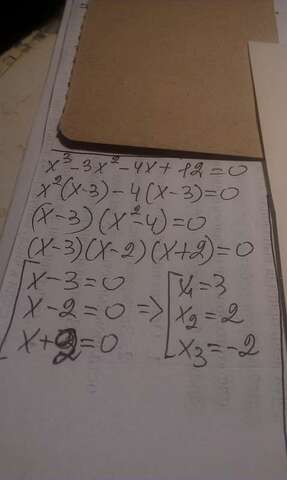 x³-3x²-4x+12=0
x²(x-3)-4(x-3)=0
(x-3)(x²-4)=0
(x-3)(x-2)(x+2)=0
[x-3=0
x-2=0 => [x₁=3
x+2=0 x₂=2
x₃=-2